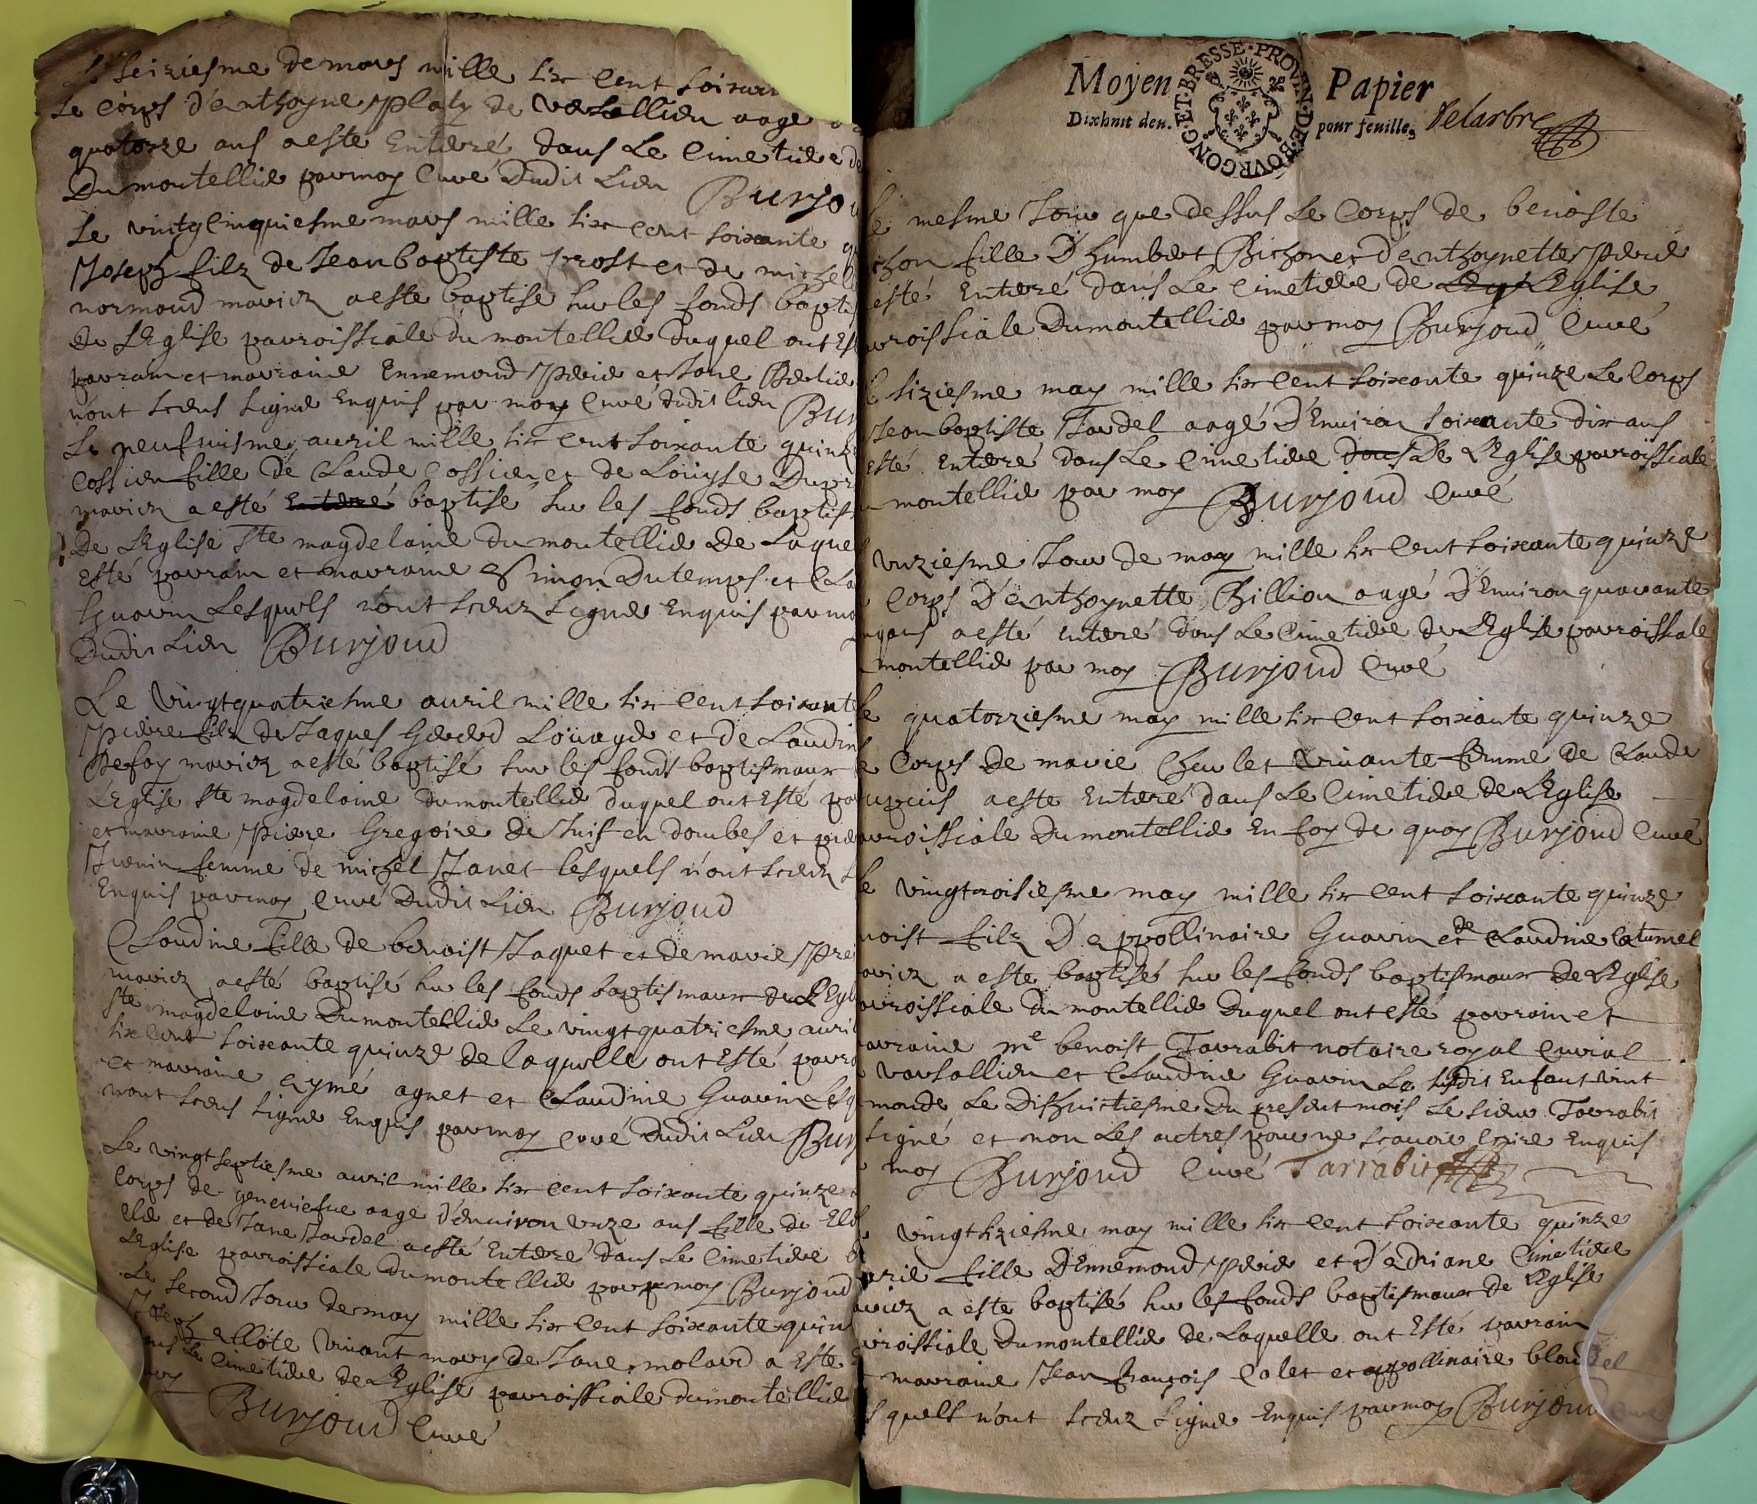 Le seiziesme de mars mille six cent soixan
Le corps d'anthoyne Platy de Versallieu aagé
quatorze ans a esté Enterré dans Le Cimetiere de
Du montellier par moy Curé Dudit Lieu Burjou
Le vintg cinquiesme mars mille six cent soixante
Joseph filz de Jean baptiste prost et de michel
normand mariez a esté baptisé sur les fonds bapti
de L'Eglise parroissiale du montellier Duquel ont Es
parrain et marraine Ennemond Perié et Jane
n'ont sceus signer Enquis par moy Curé dudit lieu Bur
Le neufuisme auril mille six cent soixante quinze
Cossieu fille de Claude Cossieu et de Loüyse Dupr
mariez a esté Enterré baptisé sur les fonds baptis
De L'Eglise Ste magdelaine du montellier De Laque
Esté parrain et marraine Simon Dutemps et Cla
Guarin Lesquels n'ont sceuz signer Enquis par mo
Dudit Lieu Burjoud
Le Vingt quatriesme auril mille six cent soixante
Pierre filz de Jaques Gerard Loüage et de Claudin
Defay mariez a esté baptisé sur les fonds baptismaux
L'Eglise Ste magdelaine Dumontellier duquel ont Esté par
et marraine Pierre Gregoire de Juif en dombes et
Juenin femme de michel Janet lesquels n'ont sceuz
Enquis par moy Curé Dudit Lieu Burjoud
Claudine fille de benoist Jaquet et de marie Pre
mariez a esté baptisé sur les fonds baptismaux de L'Egl
Ste magdelaine Dumontellier Le vingt quatriesme auril
six cent soixante quinze de laquelle ont Esté parra
et marraine aymé agnet et Claudine Guarin Lesq
n'ont sceus signer Enquis par moy Curé Dudit Lieu Bur
Le vingt septiesme auril mille six cent soixante quinze
Corps de geneuiefue aagé d'enuiron unze ans fille de
et de Jane Jardel a esté Enterré dans Le Cimetiere
L'Eglise parroissiale Dumontellier par moy Burjoud
Le second Jour de may mille six cent soixante quin
Joseph ellote viuant mary de Jane molard a Esté
Le Cimetiere de L'Eglise parroissiale dumontellier
Burjoud Curé
Moyen Papier
Dixhuit den. pour feuille,
BOVRGONG·ET·BRESSE·PROVEN·DE
Delarbre
mesme Jour que dessus Le Corps de benoiste
chon fille D'humbert Bichon et d'anthoynette Perié
esté Enterré dans Le Cimetiere de L'Eglise
rroissiale Dumontellier par moy Burjoud Curé
siziesme may mille six cent soixante quinze Le Corps
Jean baptiste Jardel aagé D'Enuiron soixante dix ans
esté Enterré dans Le Cimetiere dans De L'Eglise parroissiale
montellier par moy Burjoud Curé
vnziesme Jour de may mille six cent soixante quinze
Corps D'anthoynette Billion aagé D'Enuiron quarante
ans a esté enterré dans Le Cimetiere de L'Eglise parroissiale
montellier par moy Burjoud Curé
Le quatorziesme may mille six cent soixante quinze
Le Corps De marie Charlet viuante femme de Claude
upuis a esté Enterré dans Le Cimetiere de L'Eglise
arroissiale Dumontellier En foy de quoy Burjoud Curé
Le vingt troisiesme may mille six cent soixante quinze
noist filz D'appollinaire Guarin et de Claudine Catimel
ariez a esté baptisé sur les fonds baptismaux De L'Eglise
arroissiale Du montellier Duquel ont esté parrain et
arraine Me benoist Tarrabit notaire royal Curial
Varsallieu et Claudine Guarin Le susdit Enfant vint
monde Le Dishuictiesme Du present mois Le sieur Tarrabit
signé et non Les autres pour ne scauoir Escrire Enquis
moy Burjoud Curé Tarrabit
vingt siziesme may mille six cent soixante quinze
fille D'Ennemond Perié et d'adriane Cimetiere
ariez a esté baptisé sur les fonds baptismaux de L'Eglise
rroissiale Dumontellier de Laquelle ont Esté parrain
marraine Jean françois Calet et appollinaire blondel
squels n'ont sceuz signer Enquis par moy Burjoud Curé